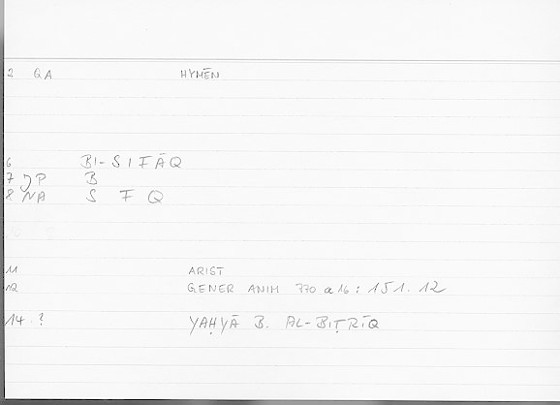 2 QA HYMĒN
6 BI-SIFĀQ
7 JP B
8 NA S F Q
11 ARIST
12 GENER ANIM 770 a 16 : 151.12
14 ? YAḤYĀ B. AL-BIṬRĪQ